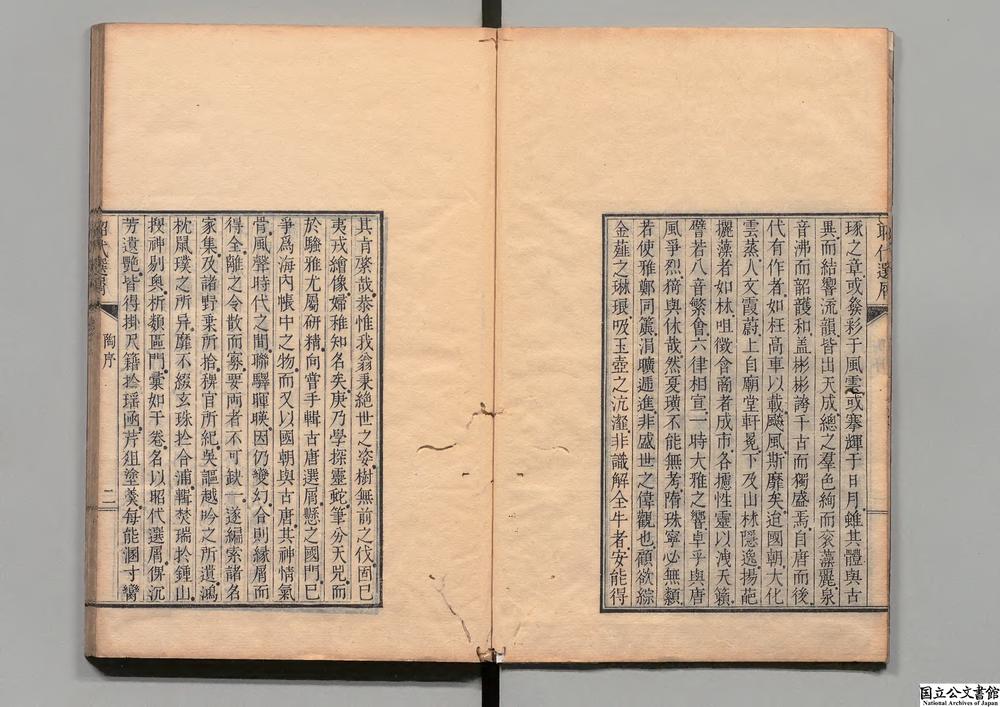 琢之章或爇彩于風雲或搴輝于日月雖其體與古
異而結響流韻皆出天成總之羣色絢而袞藻麗泉
音沸而韶頀和盖彬彬誇千古而獨盛焉自唐而後
代有作者如枉高車以載飈風斯靡矣迨國朝大化
雲蒸人文霞蔚上自廟堂軒冕下及山林隱逸揚葩
擺藻者如林咀徵含商者成市各攄性靈以洩天籟
譬若八音繁會六律相宣一時大雅之響卓乎與唐
風爭烈猗與休哉然夏璜不能無考隋珠寧必無纇
若使雅鄭同簴涓曠遞進非盛世之偉觀也顧欲綜
金薤之琳琅吸玉壺之沆瀣非識解全牛者安能得
昭代選屑
其肯綮哉恭惟我翁秉絕世之姿樹無前之伐固已
夷戎繪像婦稚知名矣庚乃學探靈蛇筆分天兕而
於騷雅尤屬研精向嘗手輯古唐選屑懸之國門已
爭爲海內帳中之物而又以國朝與古唐其神情氣
骨風聲時代之間聯驛暉暎因仍變幻合則緣屑而
得全離之令散而寡要兩者不可缺一遂編索諸名
家集及諸野乗所拾稗官所紀吳謳越吟之所遺鴻
枕鼠璞之所异靡不綴玄珠於合浦輯焚瑞於鍾山
探神剔奥析類區門彙如干卷名以昭代選屑俾沉
芳遺艷皆得掛尺籍於瑶凾芹狙塗羹每能溷寸臠
昭代選屑
陶序
二
国立公文書館
National Archives of Japan